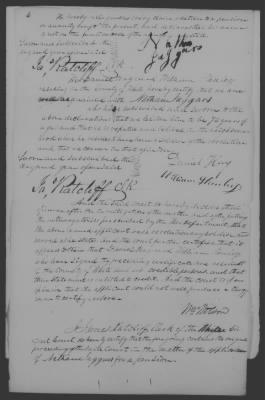 He hereby relinquishes every claim whatever to a pension
or annuity except the present and declares that his name is
not on the pension roll of the agency of
Sworn and subscribed the
day and year aforesaid
Nathan
Jaggars
Jas Ratcliff Clk
We Daniel King and William
residing in the County of hereby certify, that we are
well acquainted with Nathan Jaggars
who has subscribed and sworn to the
above declaration that we believe him to be years of
age; that he is reputed and believed in the neighborhood
where he resides to have been a soldier of the revolution
and that we concur in that opinion
Sworn and subscribed the
day and year aforesaid
Daniel King
William
Jas Ratcliff Clk
And the said court do hereby declare their
opinion after the investigation of the matter and after putting
the interrogatories prescribed by the War Department that
the above named applicant was a revolutionary soldier and
served as he states and the court further certifies that it
appears to them that Daniel King and William
who have signed the preceding certificate are residents
of the County of White and are credible persons and that
their statement is entitled to credit. And the court is of
opinion that the applicant could not
to testify
Wm Wilson
I James Ratcliff Clerk of the White Cir
cuit Court do hereby certify that the foregoing contains the original
proceedings of the said Court in the matter of the application
of Nathan Jaggars for a pension.